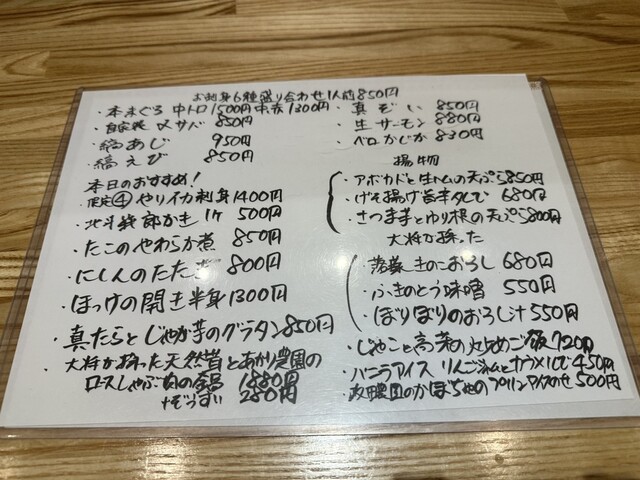 お刺身6種盛り合わせ1人前850円
・本まぐろ 中トロ1500円 中赤1300円
・自家製 〆サバ 850円
・縞あじ 950円
・縞えび 850円
本日のおすすめ!
・限定④やりイカ刺身1400円
・北斗 郎かき 1ケ 500円
・たこのやわらか煮 850円
・にしんのたたき 800円
・ほっけの開き半身1300円
・真たらとじゃが芋のグラタン850円
・大将が採った天然茸とあかり農園の
ロースしゃぶ肉の鍋 1880円
+ぞうすい 280円
・真ぞい 850円
・生サーモン 880円
・ベロかじか 830円
揚物
・アボカドと生ハムの天ぷら850円
・げそ揚げ旨辛だれで 680円
・さつま芋とゆり根の天ぷら800円
大将が採った
・落葉きのこおろし 680円
・ふきのとう味噌 550円
・ぼりぼりのおろし汁 550円
・じゃこと高菜の炒めご飯720円
・バニラアイス りんごジャムとナツメグで450円
・政田農園のかぼちゃのプリンアイスのせ500円